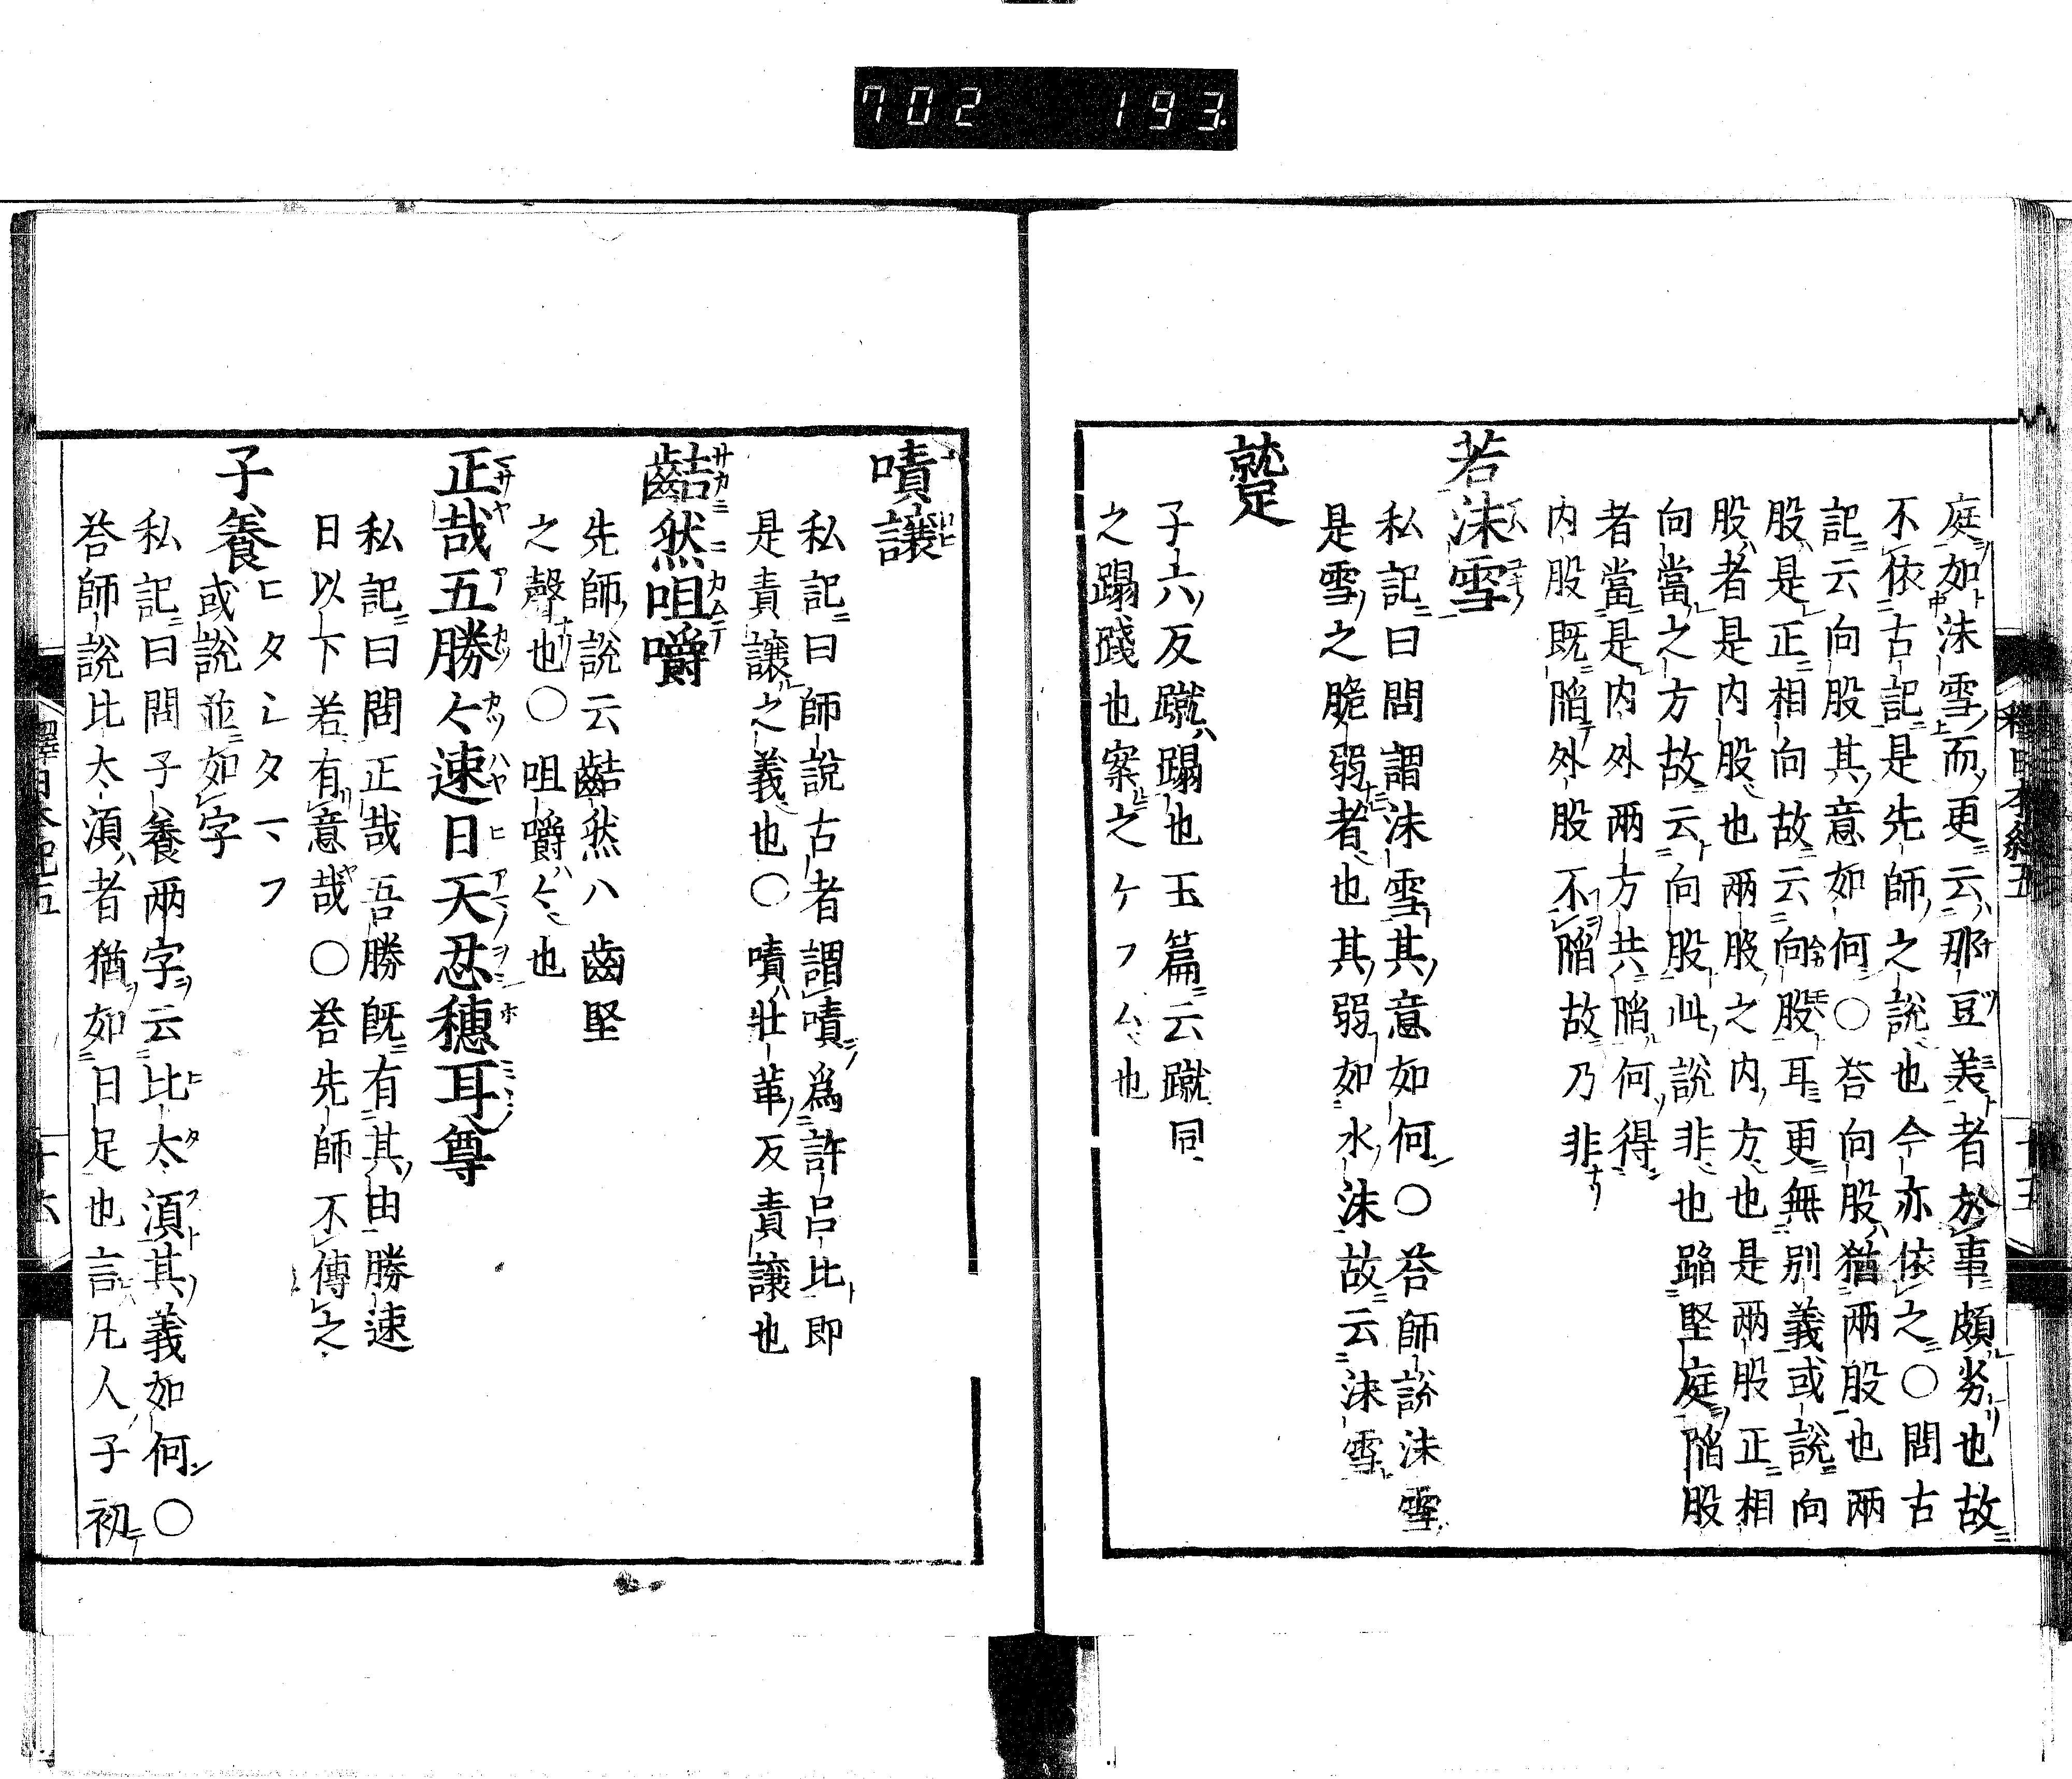 702 193.
庭如沫雪而更云那豆美者於事頗劣也故
不依古記是先師之説也今亦依之○問古
記云向股其意如何○荅向股猶兩股也兩
股是正相向故云向股耳更無別義或説向
股者是内股也兩股之内方也是兩股正相
向當之方故云向股此説非也蹈堅庭陷股
者當是内外兩方共陷何得
内股既陷外股不陷故乃非
若沫雪
私記曰問謂沫雪其意如何○荅師説沫雪
是雪之脆弱者也其弱如水沫故云沫雪
蹵
子六反蹴蹋也玉篇云蹴同
之蹋踐也案之ケフム也
嘖讓
私記曰師説古者謂嘖爲許呂比即
是責讓之義也○嘖壯革反責讓也
齰然咀嚼
先師説云齰然ハ齒堅
之聲也○咀嚼ハ〻也
正哉五勝〻速日天忍穗耳尊
私記曰問正哉吾勝既有其由勝速
日以下若有意哉○荅先師不傳之
子養ヒタシタマフ
或説並如字
私記曰問子養兩字云比太湏其義如何○
荅師説比太湏者猶如日足也言凡人子初